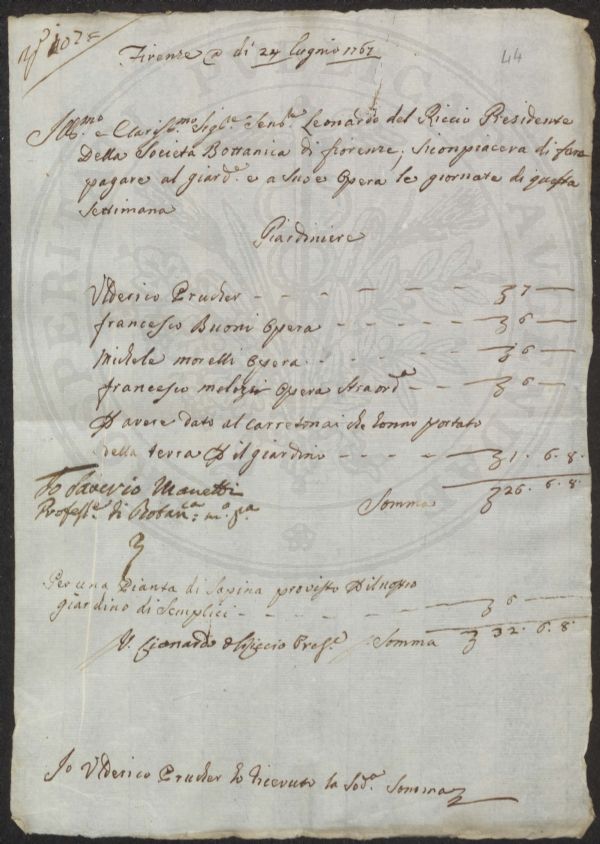 Firenze a di 24 luglio 1767
44
Ill.mo e Clariss.mo Sig.e Sen.e Leonardo del Riccio Presidente
Della Società Bottanica di fiorenze, si conpiacera di fare
pagare al giard.e e a sue Opera le giornate di questa
settimana
Giardiniere
Ulderico Prucher - - - - - 7 —
francesco Buoni Opera - - - - 6 —
Michele morelli Opera - - - - 6 —
francesco Opera straord.a - - 6 —
D avere dato al carretonai che hanno portato
della terra D il giardino - - - - 1. 6. 8.
Somma 26. 6. 8.
Io Saverio Manetti
Profess.e di Botan.ca m.o p.a
Per una Pianta di Sapina provisto
giardino di Semplici - - - - - 6 —
V. Leonardo del Riccio Pres.e Somma 32. 6. 8.
Io Ulderico Prucher ho ricevuto la Sod.a Somma